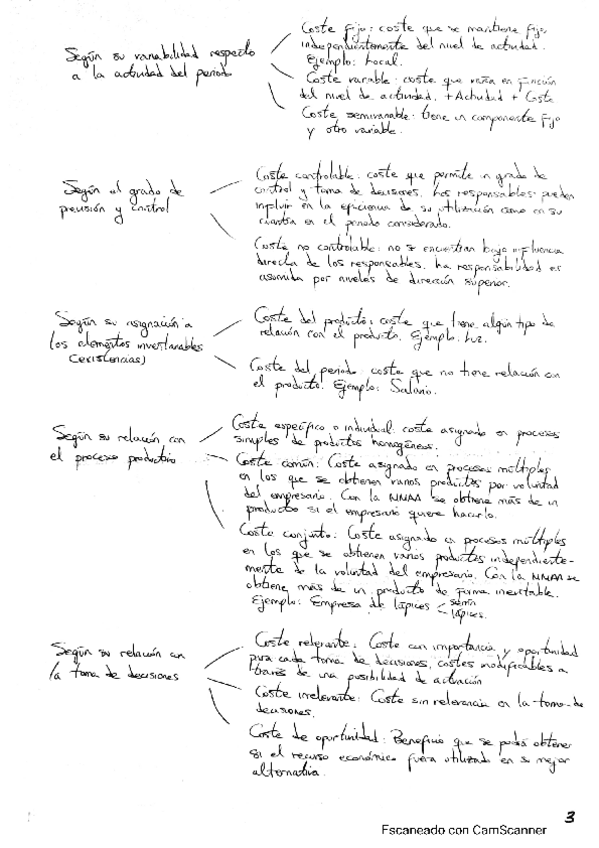 Según su variabilidad respecto
a la actividad del periodo
Coste fijo: coste que se mantiene fijo,
independientemente del nivel de actividad.
Ejemplo: Local.
Coste variable: coste que varía en función
del nivel de actividad. +Actividad + Coste
Coste semivariable: tiene un componente fijo
y otro variable.
Según el grado de
previsión y control
Coste controlable: coste que permite un grado de
control y toma de decisiones. Los responsables pueden
influir en la eficiencia de su utilización como en su
cuantía en el periodo considerado.
Coste no controlable: no se encuentran bajo influencia
directa de los responsables. La responsabilidad es
asumida por niveles de dirección superior.
Según su asignación a
los elementos inventariables
(existencias)
Coste del producto: coste que tiene algún tipo de
relación con el producto. Ejemplo: Luz.
Coste del periodo: coste que no tiene relación con
el producto. Ejemplo: Salario.
Según su relación con
el proceso productivo
Coste específico o individual: coste asignado en procesos
simples de productos homogéneos.
Coste común: Coste asignado en procesos múltiples
en los que se obtienen varios productos por voluntad
del empresario. Con la MMAA se obtiene más de un
producto si el empresario quiere hacerlo.
Coste conjunto: Coste asignado en procesos múltiples
en los que se obtienen varios productos independiente-
mente de la voluntad del empresario. Con la MMAA se
obtiene más de un producto de forma inevitable.
Ejemplo: Empresa de lápices < serrín
lápices.
Según su relación con
la toma de decisiones
Coste relevante: Coste con importancia y oportunidad
para cada toma de decisiones, costes modificables a
través de una posibilidad de actuación
Coste irrelevante: Coste sin relevancia en la toma de
decisiones.
Coste de oportunidad: Beneficio que se podía obtener
si el recurso económico fuera utilizado en su mejor
alternativa.
3
Escaneado con CamScanner